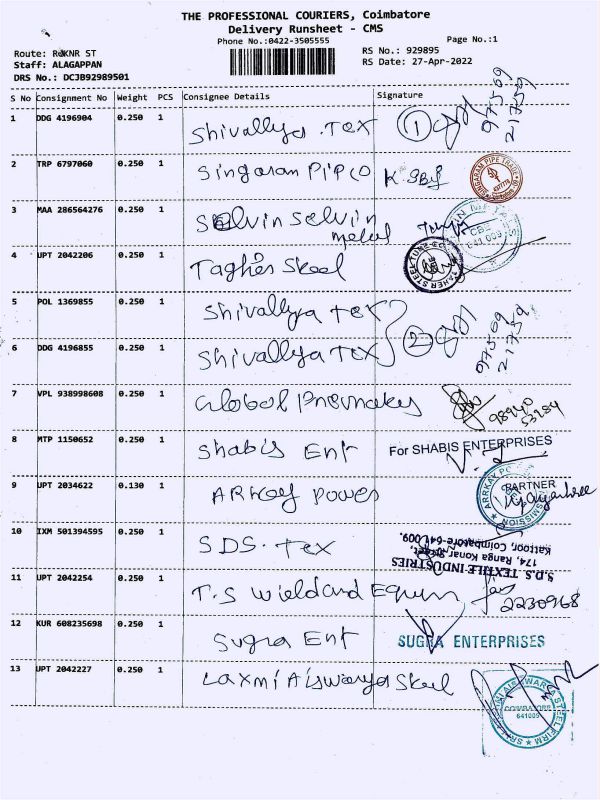 THE PROFESSIONAL COURIERS, Coimbatore
Delivery Runsheet - CMS
Phone No.:0422-3505555
Page No.:1
Route: ROKNR ST
RS No.: 929895
Staff: ALAGAPPAN
RS Date: 27-Apr-2022
DRS No.: DCJB92989501
S No Consignment No Weight PCS Consignee Details Signature
1 DDG 4196904 0.250 1 Shivallya .Tex 1 97509 21759
2 TRP 6797060 0.250 1 Singaram PiPCO
3 MAA 286564276 0.250 1 Selvin Selvin metal
641 009
4 UPT 2042206 0.250 1 Tagher Steel
5 POL 1369855 0.250 1 Shivallya Tex
6 DDG 4196855 0.250 1 Shivallya Tex 2 97509 21759
7 VPL 938998608 0.250 1 Global Pneumakes 98940 53284
8 MTP 1150652 0.250 1 Shabis Ent For SHABIS ENTERPRISES
PARTNER
9 UPT 2034622 0.130 1 ARKay Power
10 IXM 501394595 0.250 1 SDS. Tex
S.D.S. TEXTILE INDUSTRIES
174, Ranga Konar Street,
Kattoor, Coimbatore-641,009,
11 UPT 2042254 0.250 1 T.S Wieldand Equm 2230968
12 KUR 608235698 0.250 1 Sugra Ent SUGRA ENTERPRISES
13 UPT 2042227 0.250 1 Laxmi Aiswarya Steel
COIMBATORE
641009